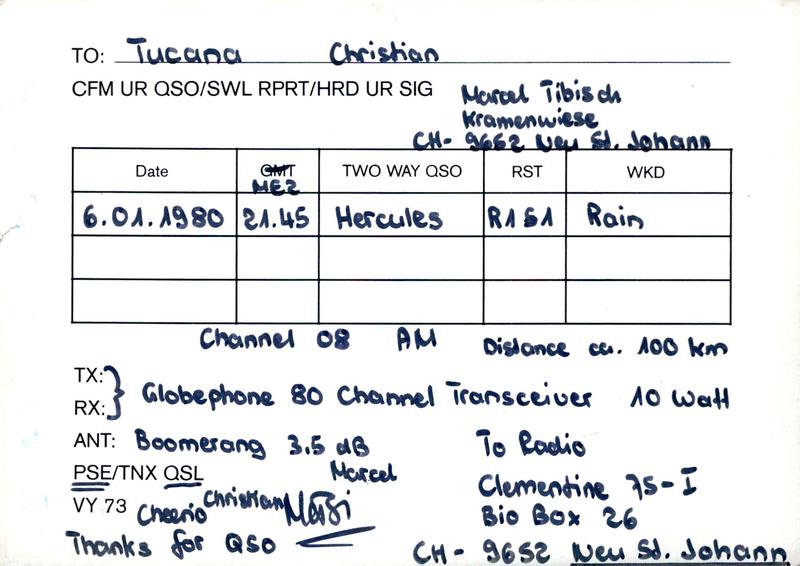 TO: Tucana Christian
CFM UR QSO/SWL RPRT/HRD UR SIG
Marcel Tibisch
Kramenwiese
CH- 9652 Neu St. Johann
Date GMT TWO WAY QSO RST WKD
MEZ
6.01.1980 21.45 Hercules R1S1 Rain
Channel 08 AM Distance ca. 100 km
TX:
RX:
Globephone 80 Channel Transceiver 10 Watt
ANT: Boomerang 3.5 dB To Radio
PSE/TNX QSL Marcel Clementine 75-I
VY 73 Cheerio Christian Bio Box 26
Thanks for QSO CH- 9652 Neu St. Johann